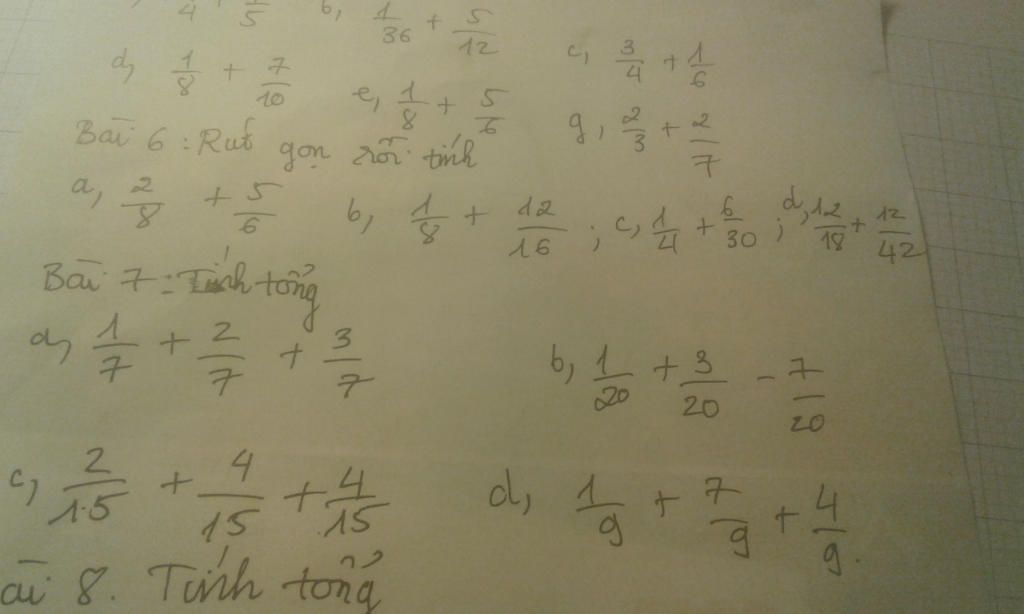 4 + 1/5 b, 1/36 + 5/12
c, 3/4 + 1/6
d, 1/8 + 7/10 e, 1/8 + 5/6 g, 2/3 + 2/7
Bài 6 : Rut gọn rồi tính
a, 2/8 + 5/6 b, 1/8 + 12/16 ; c, 1/4 + 6/30 ; d, 12/18 + 12/42
Bài 7 : Tính tổng
a, 1/7 + 2/7 + 3/7 b, 1/20 + 3/20 - 7/20
c, 2/15 + 4/15 + 4/15 d, 1/9 + 7/9 + 4/9.
ài 8. Tính tổng